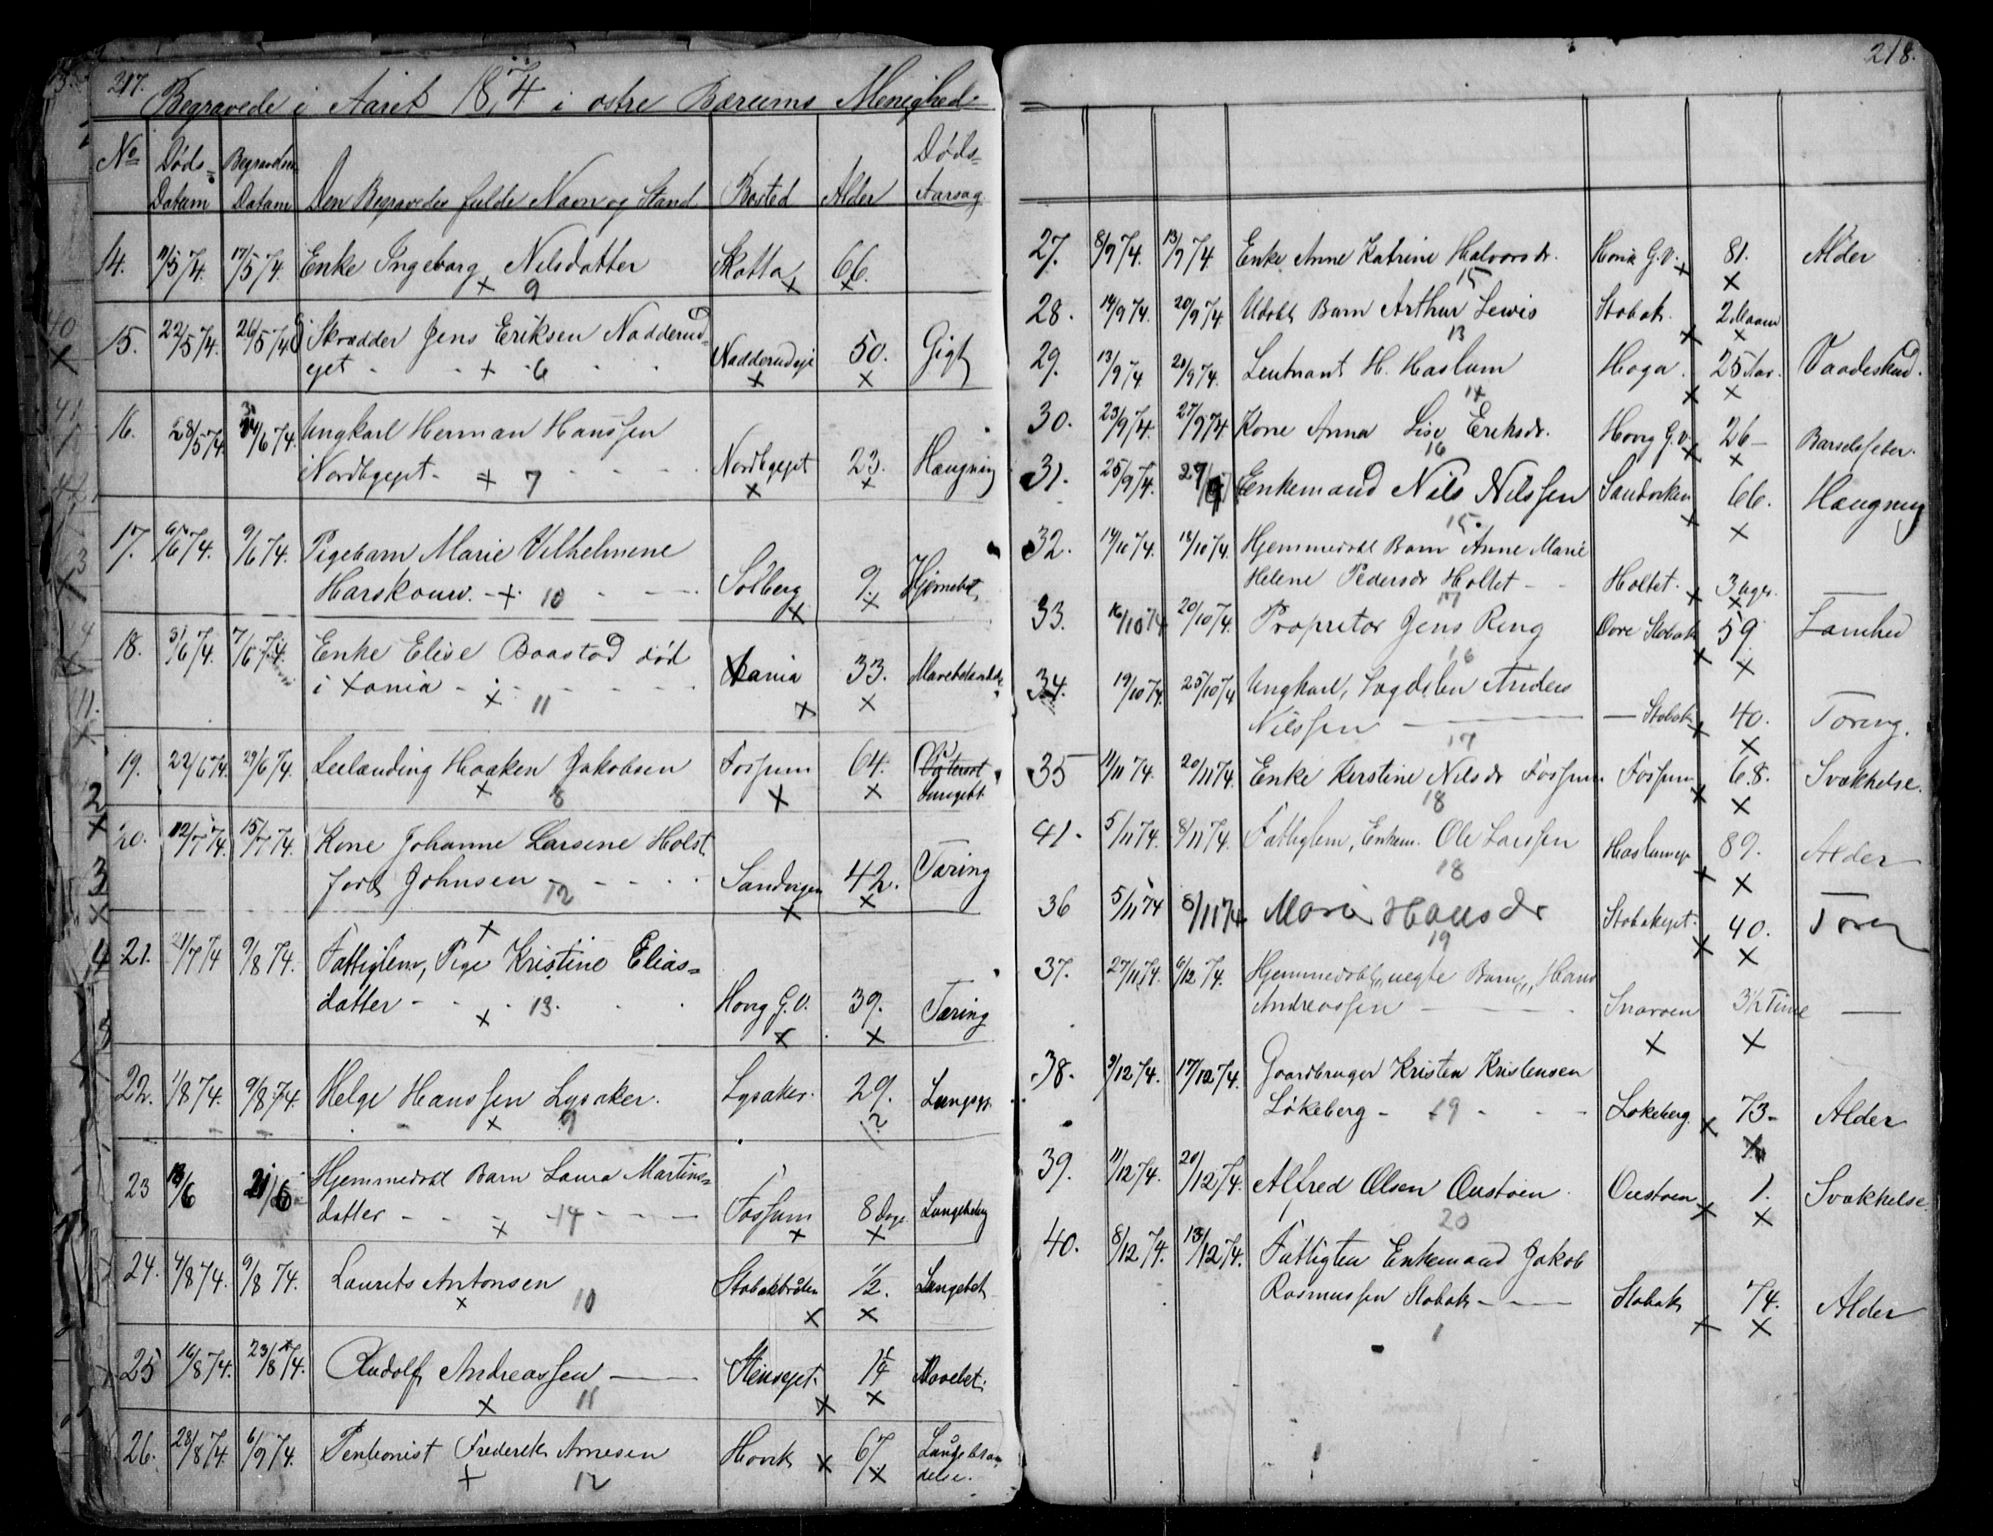 217.
Begravede i Aaret 1874 i østre Bærums Menighed.
No Døds- Datum Begravelses Datum Den Begravedes fulde Navn og Stand Bosted Alder Døds- Aarsag
14. 11/5 74. 17/5 74. Enke Ingeborg Nilsdatter Skotta 66.
× 9 × ×
15. 22/5 74. 26/5 74 Skrædder Jens Eriksen Nadderud-
ejet - - × 6 Nadderudeje 50. Gigt
× ×
16. 28/5 74. 14/6 74. Ungkarl Herman Hanssen
Nordbyejet - × 7 - - - Nordbyejet 23. Hængning
× ×
17. 6/6 74. 9/6 74. Pigebarn Marie Vilhelmene
Harskouw. - × 10 - - - Solberg 9. Hjernebet.
× ×
18. 3/6 74. 7/6 74. Enke Elise Baastad død
i Xania - × 11 - - - Xania 33. Mavebetændelse
× ×
19. 22/6 74. 29/6 74. Leilænding Haaken Jakobsen Fossum 64.
× 8 × × Lungebt.
20. 12/7 74. 15/7 74. Kone Johanne Larsene Holst
født Johnsen - 12 - - Sandvigen 42. Tæring
× ×
×
21. 21/7 74 9/8 74. Fattiglem, Pige Kristine Elias-
datter - - 13. Hovig G.V. 39. Tæring
× × ×
22. 1/8 74. 9/8 74. Helge Hanssen Lysaker. Lysaker. 29.
× 9 ?
23 13/6 21/6 Hjemmedøbt Barn Laura Martins-
datter - - - 14 - - - Fossum 8 Dage
× × ×
24. 4/8 74. 9/8 74. Laurits Antonsen Stabækbråten 1/2. Lungebet.
× 10 × ×
25 16/8 74. 23/8 74. Rudolf Andreassen —— Stensejet. 1/4 Mavebet.
× 11 × ×
26. 28/8 74. 6/9 74. Pentionist Frederik Arnesen Hovik × 67 Lungebetæn
× 12 × delse.
218.
27. 8/9 74. 13/9 74. Enke Anne Katrine Halvorsdr. Hovik G.V. × 81. Alder
15 ×
28. 14/9 74. 20/9 74. Udøbt Barn Arthur Lewis Stabæk. 2 Maan
13 ×
29. 13/9 74 20/9 74. Leutnant H. Haslum Haga. 25 Aar. Vaadeskud.
14 × ×
30. 23/9 74. 27/9 74 Kone Anna Lise Eriksdr. Hovig G.V. 26 - Barselfeber.
16 × ×
31. 25/9 74. 27/9 Enkemand Nils Nilssen Sandviken 66. Hængning
15 × ×
32. 14/10 74. 18/10 74. Hjemmedøbt Barn Anne Marie
Helene Pedersdr Holtet - - Holtet. 3 Uger. —
17 × ×
33. 16/10 74 20/10 74. Propritær Jens Ring Øvre Stabæk 59. Lamhed
16 × ×
34. 19/10 74. 25/10 74 Ungkarl, Lægdslem Anders
Nilssen —— — Stabæk 40. Tæring.
17 × ×
35 11/11 74. 20/11 74. Enke Kerstine Nilsdr Fossum. Fossum 68. Svækkelse.
18 × ×
41. 5/11 74. 8/11 74. Fattiglem, Enkem. Ole Larssen Haslumeje 89. Alder
18 × ×
36 5/11 74 8/11 74. Mari Hansdr Stabækejet. 40. Tæring
19 × ×
37. 27/11 74. 6/12 74. Hjemmedøbt "uegte Barn" Hans
Andreassen —— - Snarøen 3 1/2 Time —
× ×
38. 9/12 74. 17/12 74. Gaardbruger Kristen Kristensen
Løkeberg - 19 - - - Løkeberg × 73 - Alder
×
39. 11/12 74. 20/12 74. Alfred Olsen Oustøen. Oustøen × 1. Svækkelse
20 ×
40. 8/12 74. 13/12 74. Fattiglem Enkemand Jakob
Rasmussen Stabæk - —— Stabæk 74. Alder
1 × ×